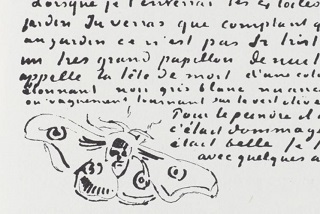 Lorsque je t'enverrai les toiles
jardin Tu verras que comptant q
au jardin ce n'est pas si trist
un très grand papillon de nuit
appelle la tête de mort d'une colo
étonnant noir gris blanc nuancé
ou vaguement tournant sur le vert olive
Pour le peindre il a
c'était dommage
était belle Je t
avec quelques a